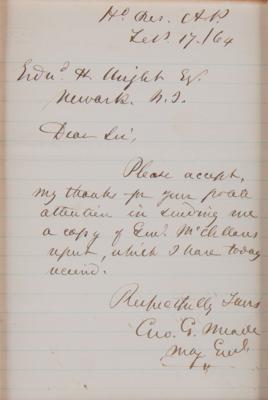 Hd Qrs. A.P.
Feb. 17./64
Edwd H. Wright Esq.
Newark. N.J.
Dear Sir,
Please accept,
my thanks for your polite
attention in sending me
a copy of Genl. McClellans
report, which I have today
received.
Respectfully Yours
Geo. G. Meade
Maj Genl.